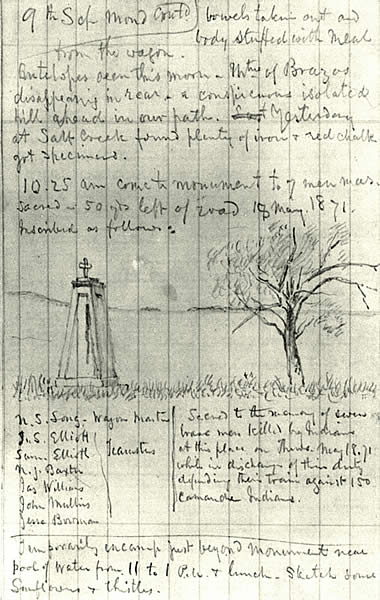 9th Sep. Mond Contd
bowels taken out and
body stuffed with meal
from the wagon.
Antelopes seen this morn - Mtns of Brazos
disappearing in rear - a conspicuous isolated
hill ahead in our path. Yesterday
at Salt Creek found plenty of iron & red chalk
got specimens.
10.25 am come to monument to 7 men mas-
sacred - 50 yds left of road 18 May 1871.
Inscribed as follows:
N. S. Long - Wagon Master
J. S. Elliott
Saml. Elliott
N. J. Baxter
Jas Williams
John Mullins
Jesse Bowman
Teamsters
Sacred to the memory of seven
brave men killed by Indians
at this place on Thurs. May 18. 71
while in discharge of their duty
defending their train against 150
Camanche Indians.
Temporarily encamp just beyond monument near
pool of water from 11 to 1 P.M. & lunch - Sketch some
Sunflowers & thistles.